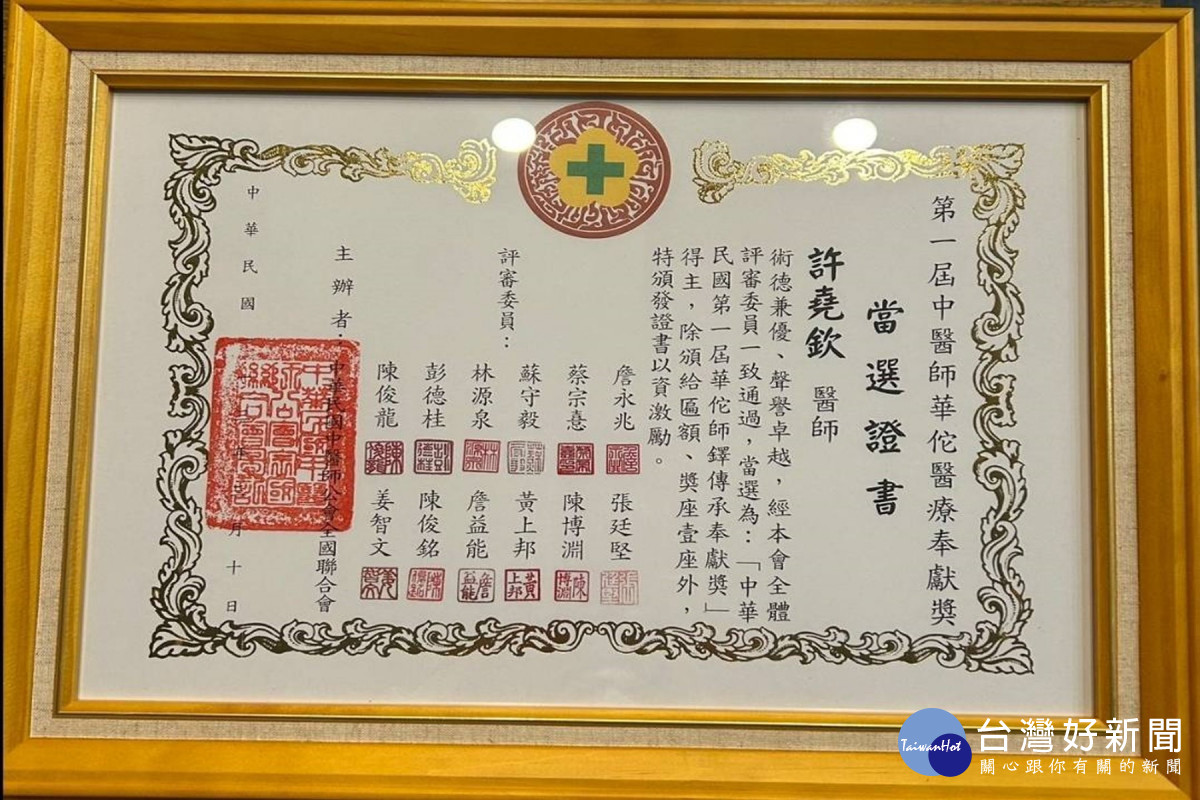 第一屆中醫師華佗醫療奉獻獎
當選證書
許堯欽 醫師
術德兼優、聲譽卓越，經本會全體
評審委員一致通過，當選為：「中華
民國第一屆華佗師鐸傳承奉獻獎」
得主，除頒給匾額、獎座壹座外，
特頒發證書以資激勵。
評審委員：
詹永兆 張廷堅
蔡宗憙 陳博淵
蘇守毅 黃上邦
林源泉 詹益能
彭德桂 陳俊銘
陳俊龍 姜智文
主辦者：中華民國中醫師公會全國聯合會
中華民國 年 月十日
台灣好新聞
TaiwanHot
關心跟你有關的新聞